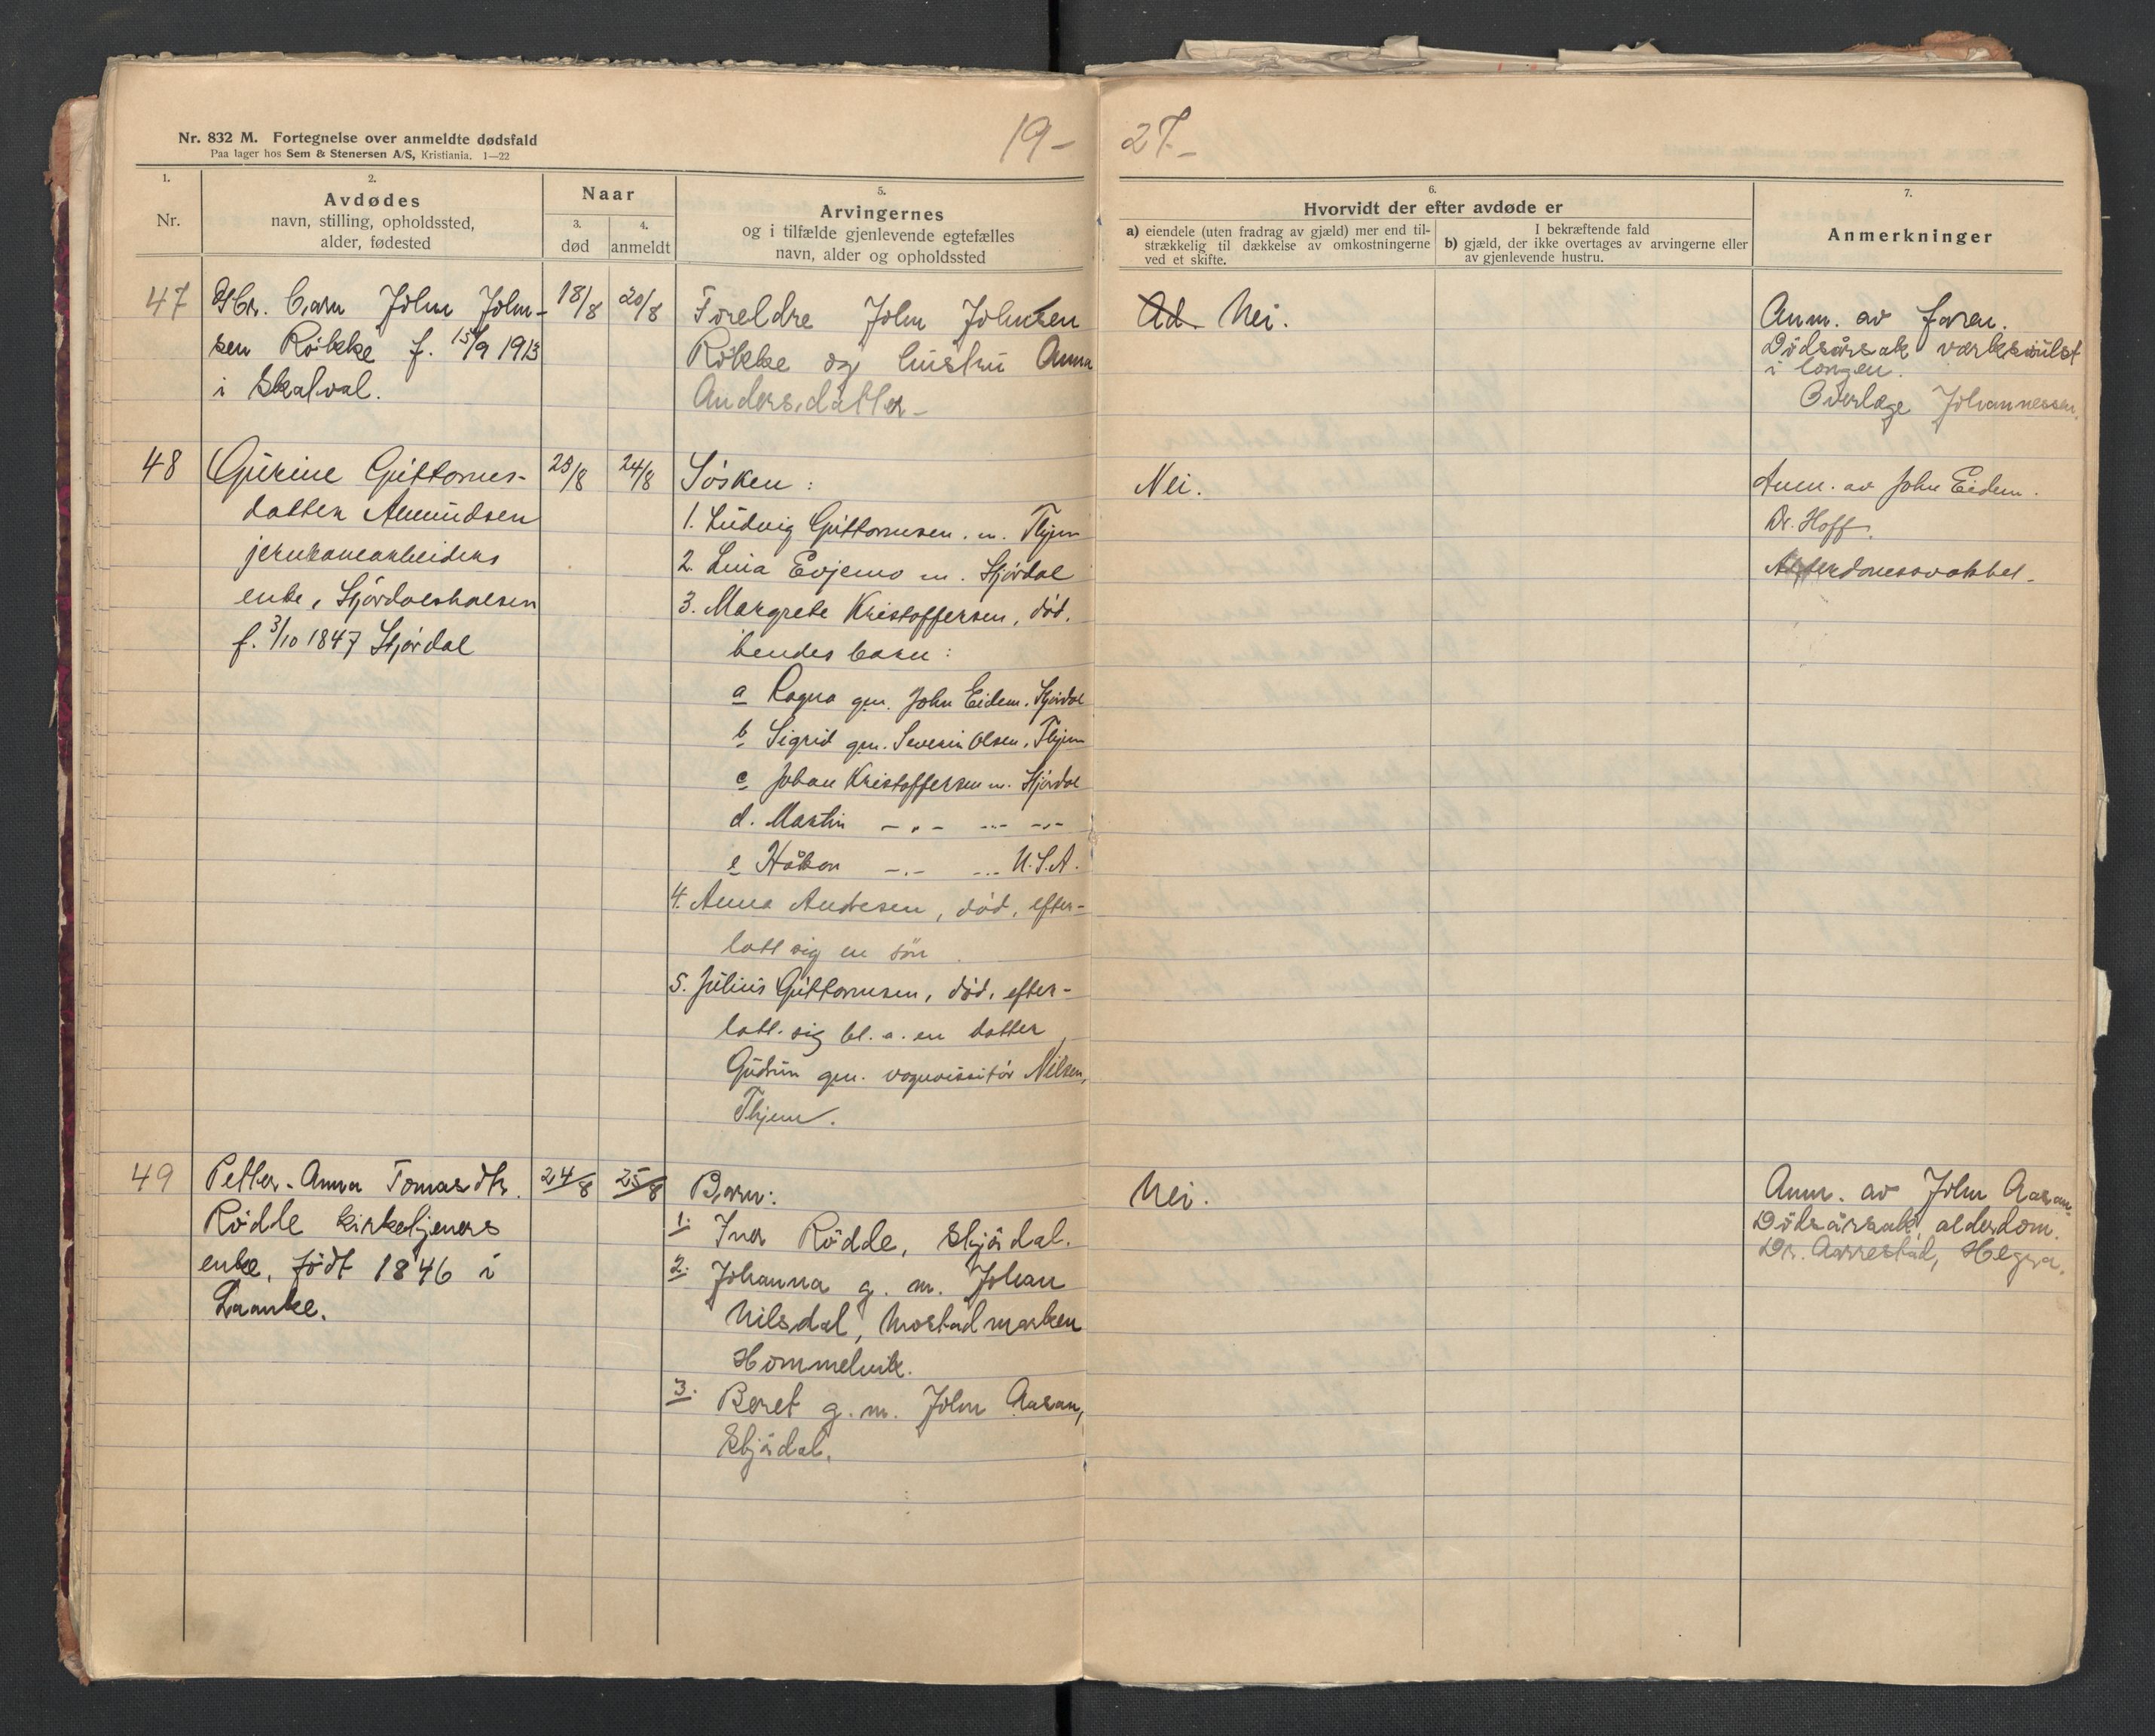 Nr. 832 M. Fortegnelse over anmeldte dødsfald
Paa lager hos Sem & Stenersen A/S, Kristiania. 1—22
19-
27.-
1.
Nr.
2.
Avdødes
navn, stilling, opholdssted,
alder, fødested
Naar
3.
død
4.
anmeldt
5.
Arvingernes
og i tilfælde gjenlevende egtefælles
navn, alder og opholdssted
6.
Hvorvidt der efter avdøde er
a) eiendele (uten fradrag av gjæld) mer end til-
strækkelig til dækkelse av omkostningerne
ved et skifte.
I bekræftende fald
b) gjæld, der ikke overtages av arvingerne eller
av gjenlevende hustru.
7.
Anmerkninger
47
barn John John-
sen Røkke f. 15/9 1913
i Skatval.
18/8
20/8
Foreldre John Johnsen
Røkke og hustru Anna
Andersdatter-
Nei.
Anm. av faren.
Dødsårsak verksvulst
i lungen.
Overlæge Johannessen.
48
Gurine Guttorms-
datter Amundsen
jernbanearbeiders
enke, Stjørdalshalsen
f. 3/10 1847 Stjørdal
23/8
24/8
Søsken:
1. Ludvig Guttormsen. m. Thjem
2. Lina Evjemo m. Stjørdal
3. Margrete Kristoffersen, død.
hendes barn:
a Ragna gm. John Eidem. Stjørdal
b Sigrid gm. Severin Olsen, Thjem
c Johan Kristoffersen m. Stjørdal
d. Martin -.- --- -.-
e Håkon -.- ... U.S.A.
4. Anna Andresen, død, efter-
latt sig en søn.
5. Julius Guttormsen, død, efter-
latt sig bl. a. en datter
Gudrun gm. vognvisitør Nilsen,
Thjem.
Nei.
Anm. av John Eidem.
Dr. Hoff.
Alderdomssvakhet.
49
Petter-Anna Tomasdtr.
Rødde kirketjeners
enke, født 1846 i
Laanke.
24/8
25/8
Barn:
1. Iver Rødde, Stjørdal.
2. Johanna g. m. Johan
Nilsdal, Mostadmarken
Hommelvik.
3. Beret g. m. John Aasan,
Stjørdal.
Nei.
Anm. av John Aasan.
Dødsårsak, alderdom.
Dr. Aarrestad, Hegra.